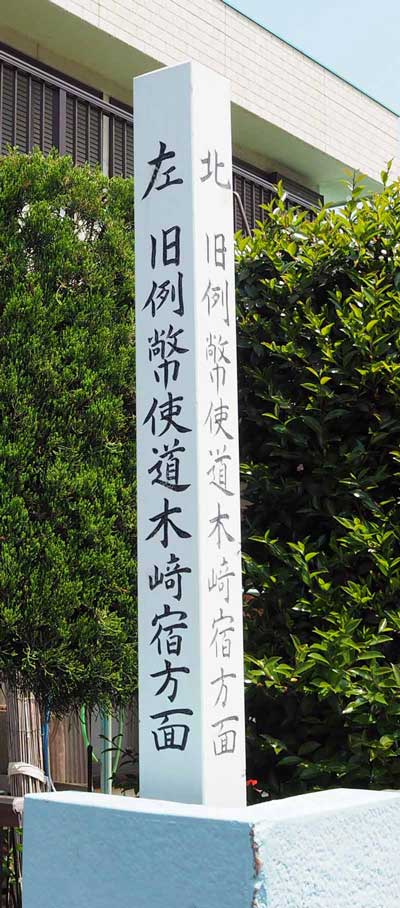 左 旧例幣使道木崎宿方面
北 旧例幣使道木崎宿方面